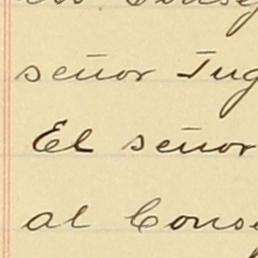 señor Ing
El señor
al Conse